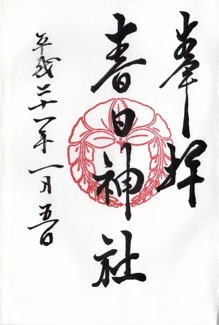 奉拝
春日神社
平成二十一年一月五日